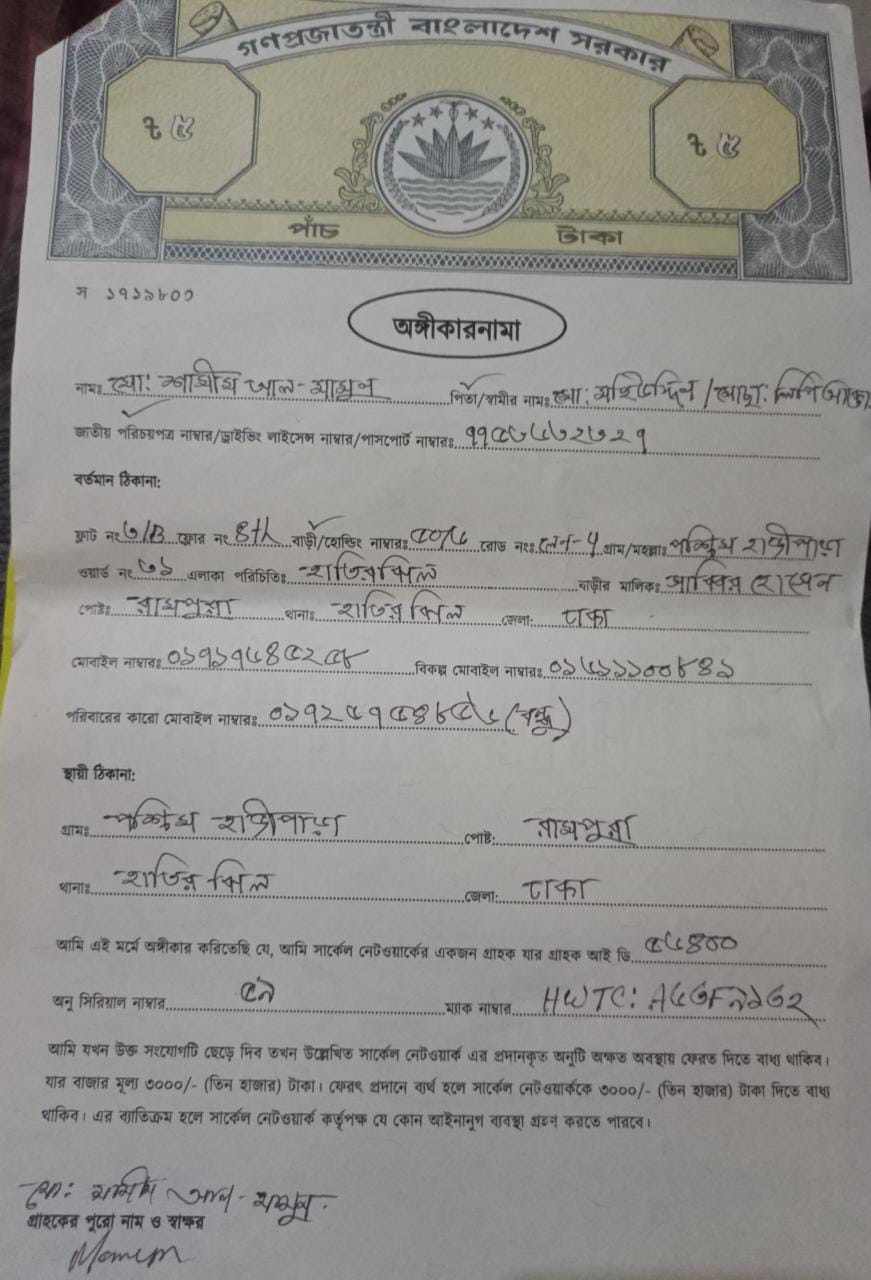 গণপ্রজাতন্ত্রী বাংলাদেশ সরকার
৳ ৫ ৳ ৫
পাঁচ টাকা
স ১৭১৯৮০০
অঙ্গীকারনামা
নামঃ মো: শামীম আল-মামুন পিতা/স্বামীর নামঃ মো: মহিউদ্দিন / মোছা: লিপি
জাতীয় পরিচয়পত্র নাম্বার/ড্রাইভিং লাইসেন্স নাম্বার/পাসপোর্ট নাম্বারঃ
বর্তমান ঠিকানা:
ফ্লাট নং ৬/B ফ্লোর নং 8th বাড়ী/হোল্ডিং নাম্বারঃ রোড নংঃ লেন-৭ গ্রাম/মহল্লাঃ পশ্চিম হাজীপাড়া
ওয়ার্ড নং এলাকা পরিচিতিঃ হাতিরঝিল বাড়ীর মালিকঃ হোসেন
পোষ্টঃ রামপুরা থানাঃ হাতির ঝিল জেলা: ঢাকা
মোবাইল নাম্বারঃ বিকল্প মোবাইল নাম্বারঃ
পরিবারের কারো মোবাইল নাম্বারঃ (বন্ধু)
স্থায়ী ঠিকানা:
গ্রামঃ পশ্চিম হাজীপাড়া পোষ্ট: রামপুরা
থানাঃ হাতির ঝিল জেলা: ঢাকা
আমি এই মর্মে অঙ্গীকার করিতেছি যে, আমি সার্কেল নেটওয়ার্কের একজন গ্রাহক যার গ্রাহক আই ডি ৫৬৪০০
অনু সিরিয়াল নাম্বার ৫৯ ম্যাক নাম্বার HWTC:
আমি যখন উক্ত সংযোগটি ছেড়ে দিব তখন উল্লেখিত সার্কেল নেটওয়ার্ক এর প্রদানকৃত অনুটি অক্ষত অবস্থায় ফেরত দিতে বাধ্য থাকিব।
যার বাজার মূল্য ৩০০০/- (তিন হাজার) টাকা। ফেরৎ প্রদানে ব্যর্থ হলে সার্কেল নেটওয়ার্ককে ৩০০০/- (তিন হাজার) টাকা দিতে বাধ্য
থাকিব। এর ব্যতিক্রম হলে সার্কেল নেটওয়ার্ক কর্তৃপক্ষ যে কোন আইনানুগ ব্যবস্থা গ্রহন করতে পারবে।
মো: শামীম আল-মামুন
গ্রাহকের পুরো নাম ও স্বাক্ষর